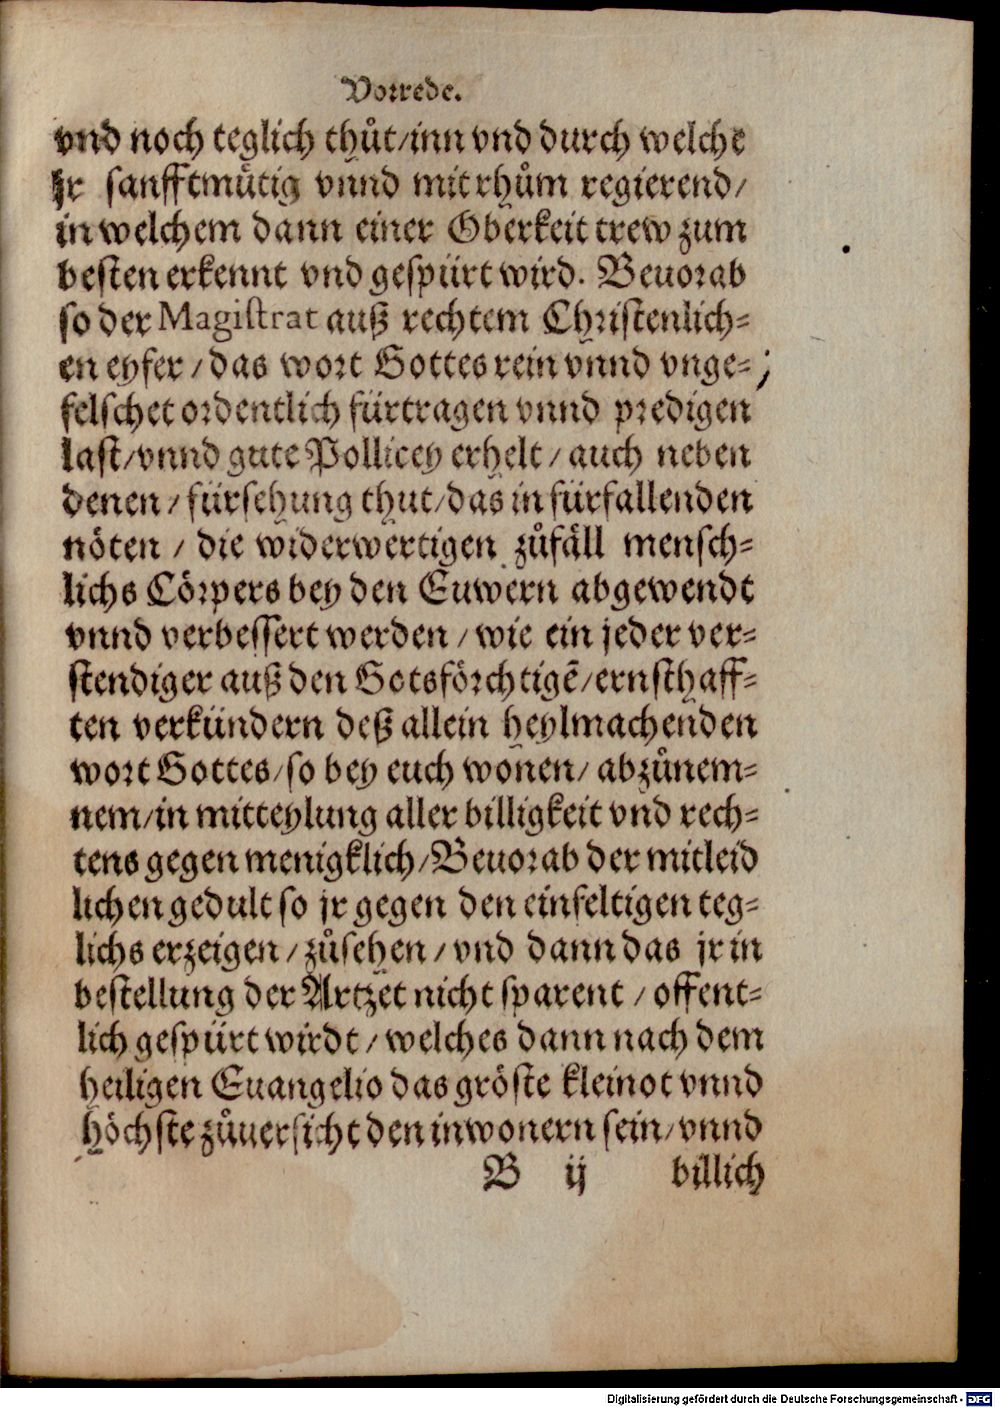 Vorrede.
vnd noch teglich thůt/inn vnd durch welche
Ir sanfftmütig vnnd mit rhům regierend/
in welchem dann einer Oberkeit trew zum
besten erkennt vnd gespürt wird. Beuorab
so der Magistrat auß rechtem Christenlich=
en eyfer/das wort Gottes rein vnnd vnge=
felschet ordentlich fürtragen vnnd predigen
last/vnnd gute Pollicey erhelt/auch neben
denen/fürsehung thut/das in fürfallenden
nöten/die widerwertigen zůfäll mensch=
lichs Cörpers bey den Euwern abgewendt
vnnd verbessert werden/wie ein jeder ver=
stendiger auß den Gotsförchtigē/ernsthaff=
ten verkündern deß allein heylmachenden
wort Gottes/so bey euch wonen/abzůnem=
nem/in mitteylung aller billigkeit vnd rech=
tens gegen menigklich/Beuorab der mitleid
lichen gedult so jr gegen den einfeltigen teg=
lichs erzeigen/zůsehen/vnd dann das jr in
bestellung der Artzet nicht sparent/offent=
lich gespürt wirdt/welches dann nach dem
heiligen Euangelio das gröste kleinot vnnd
höchste zůuersicht den inwonern sein/vnnd
B ij billich
Digitalisierung gefördert durch die Deutsche Forschungsgemeinschaft - DFG